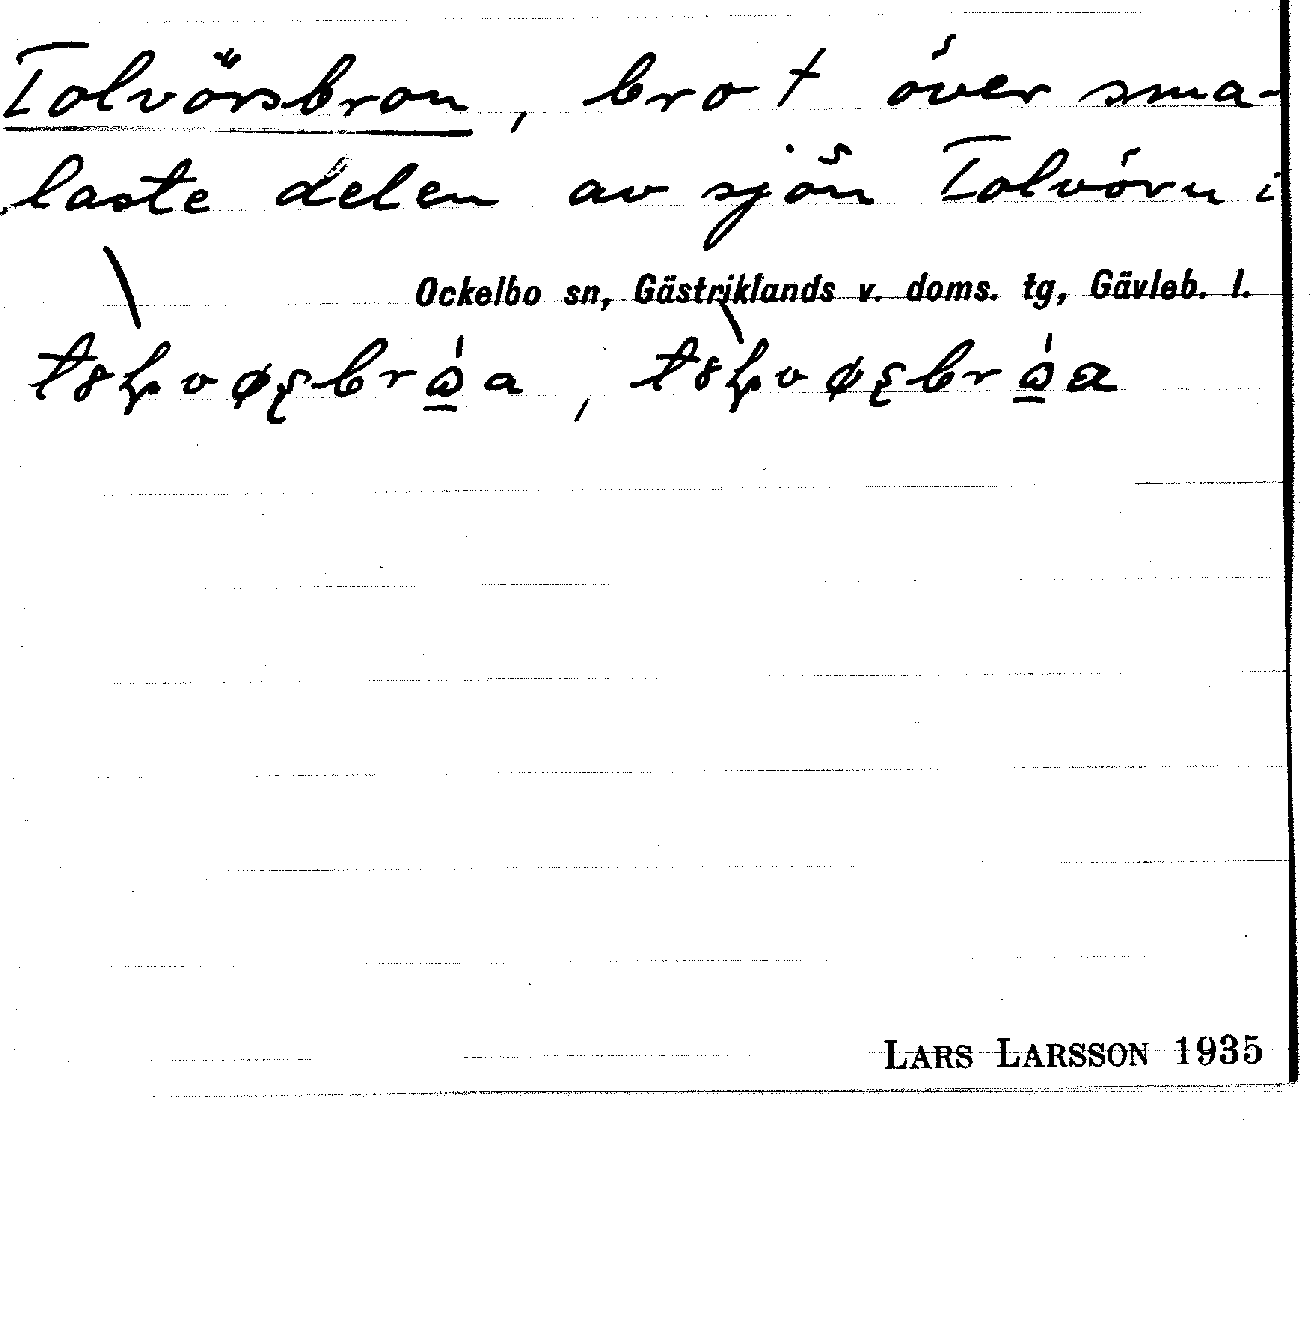 Tolvörsbron, bro † över sma-
laste delen av sjön Tolvörn i
Ockelbo sn, Gästriklands v. doms. tg, Gävleb. l.
LARS LARSSON 1935